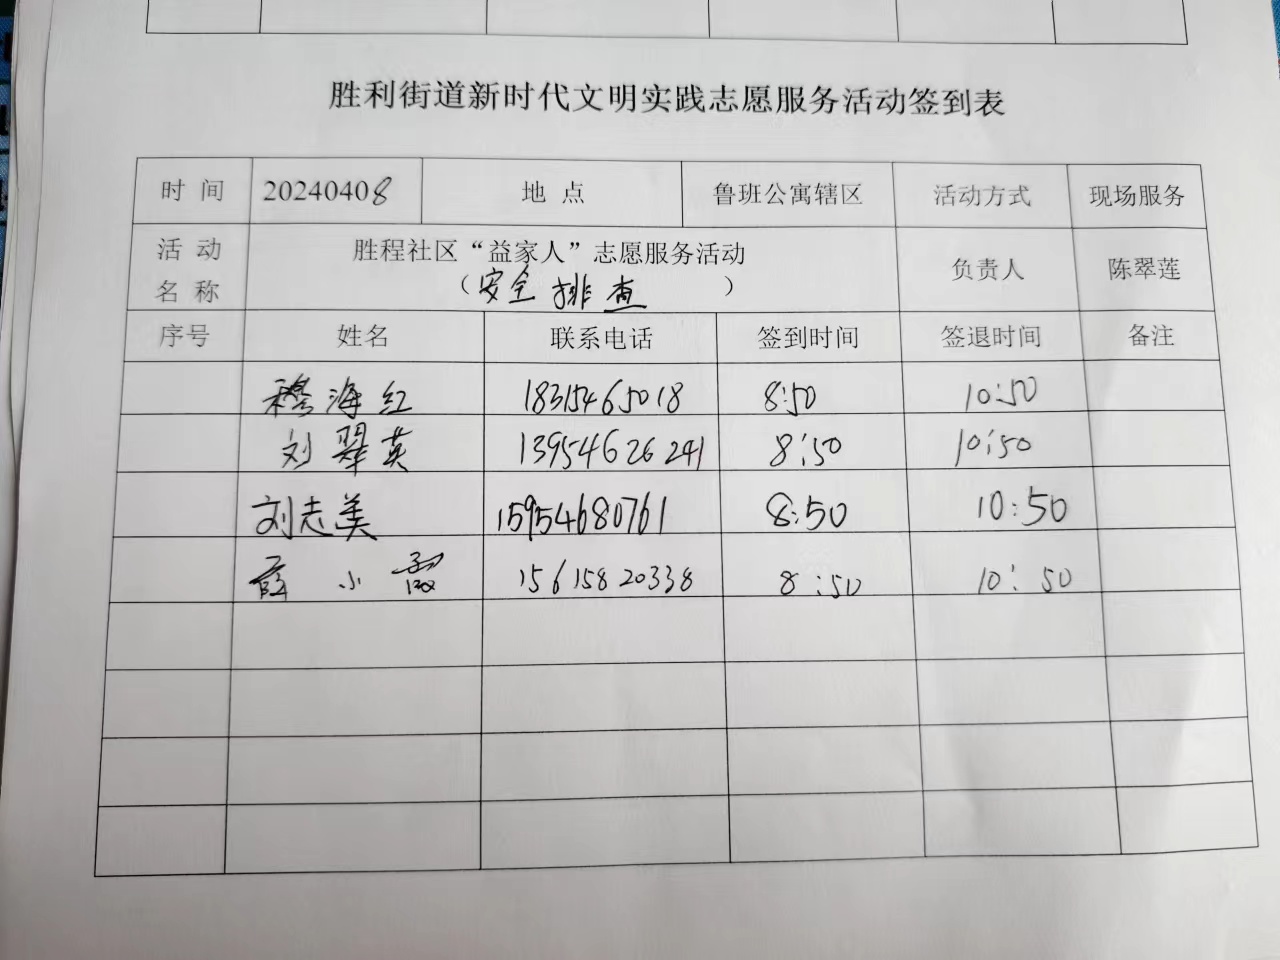 胜利街道新时代文明实践志愿服务活动签到表
时 间 20240408 地 点 鲁班公寓辖区 活动方式 现场服务
活 动 名 称 胜程社区“益家人”志愿服务活动 负责人 陈翠莲
（安全排查）
序号 姓名 联系电话 签到时间 签退时间 备注
穆海红 18315465018 8:50 10:50
刘翠英 13954626241 8:50 10:50
刘志美 15954680761 8:50 10:50
薛小霞 15615820338 8:50 10:50